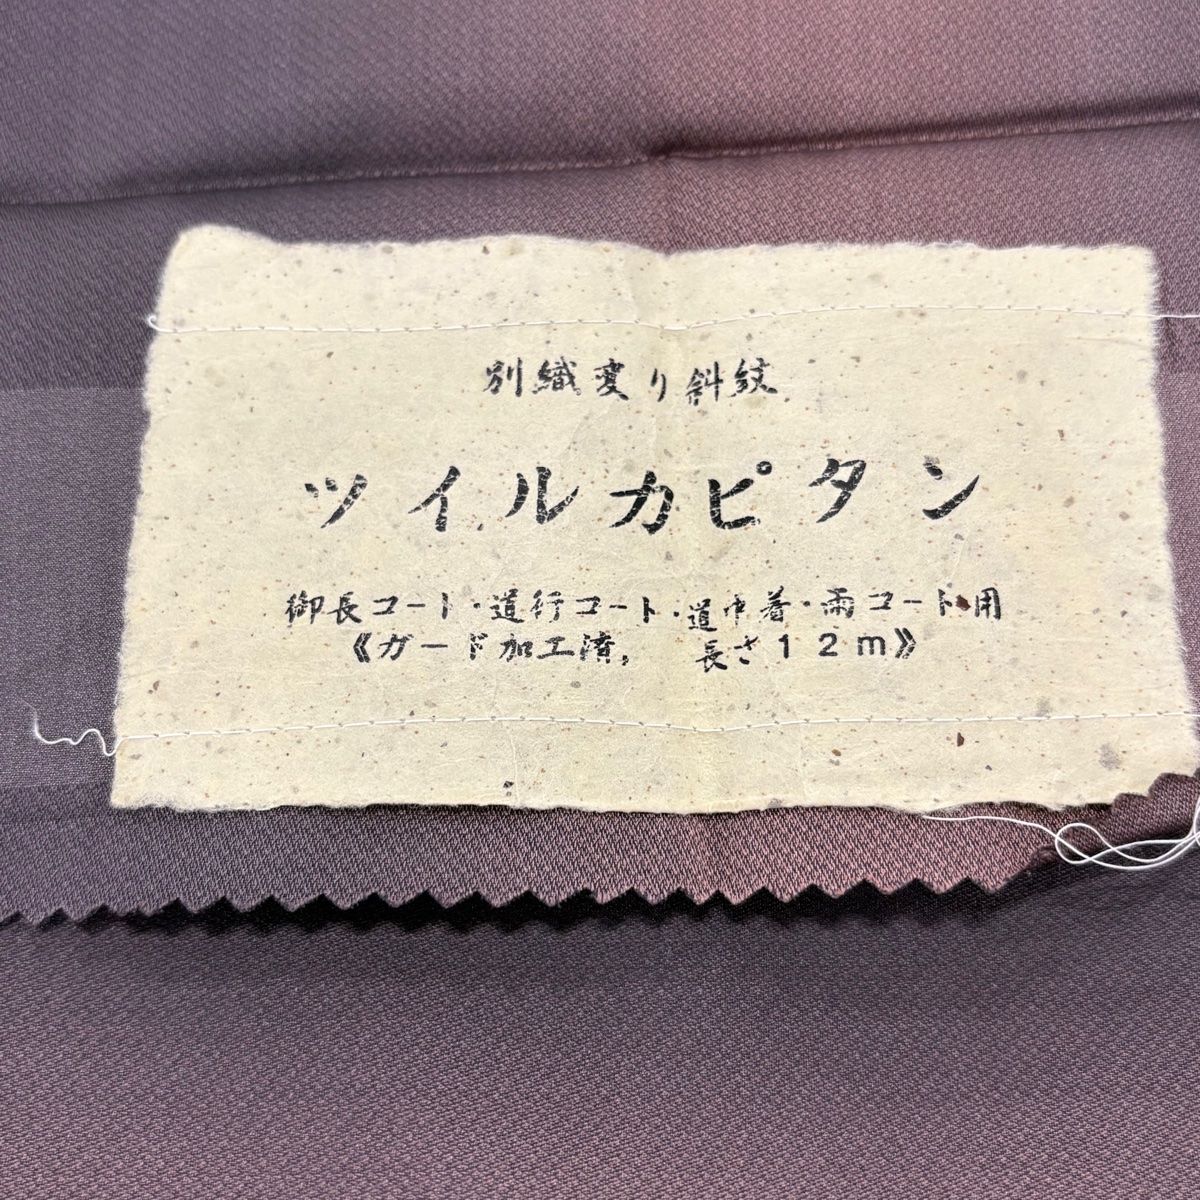 別織変り斜紋
ツイルカピタン
御長コート・道行コート・道中着・雨コート用
《ガード加工済, 長さ12m》